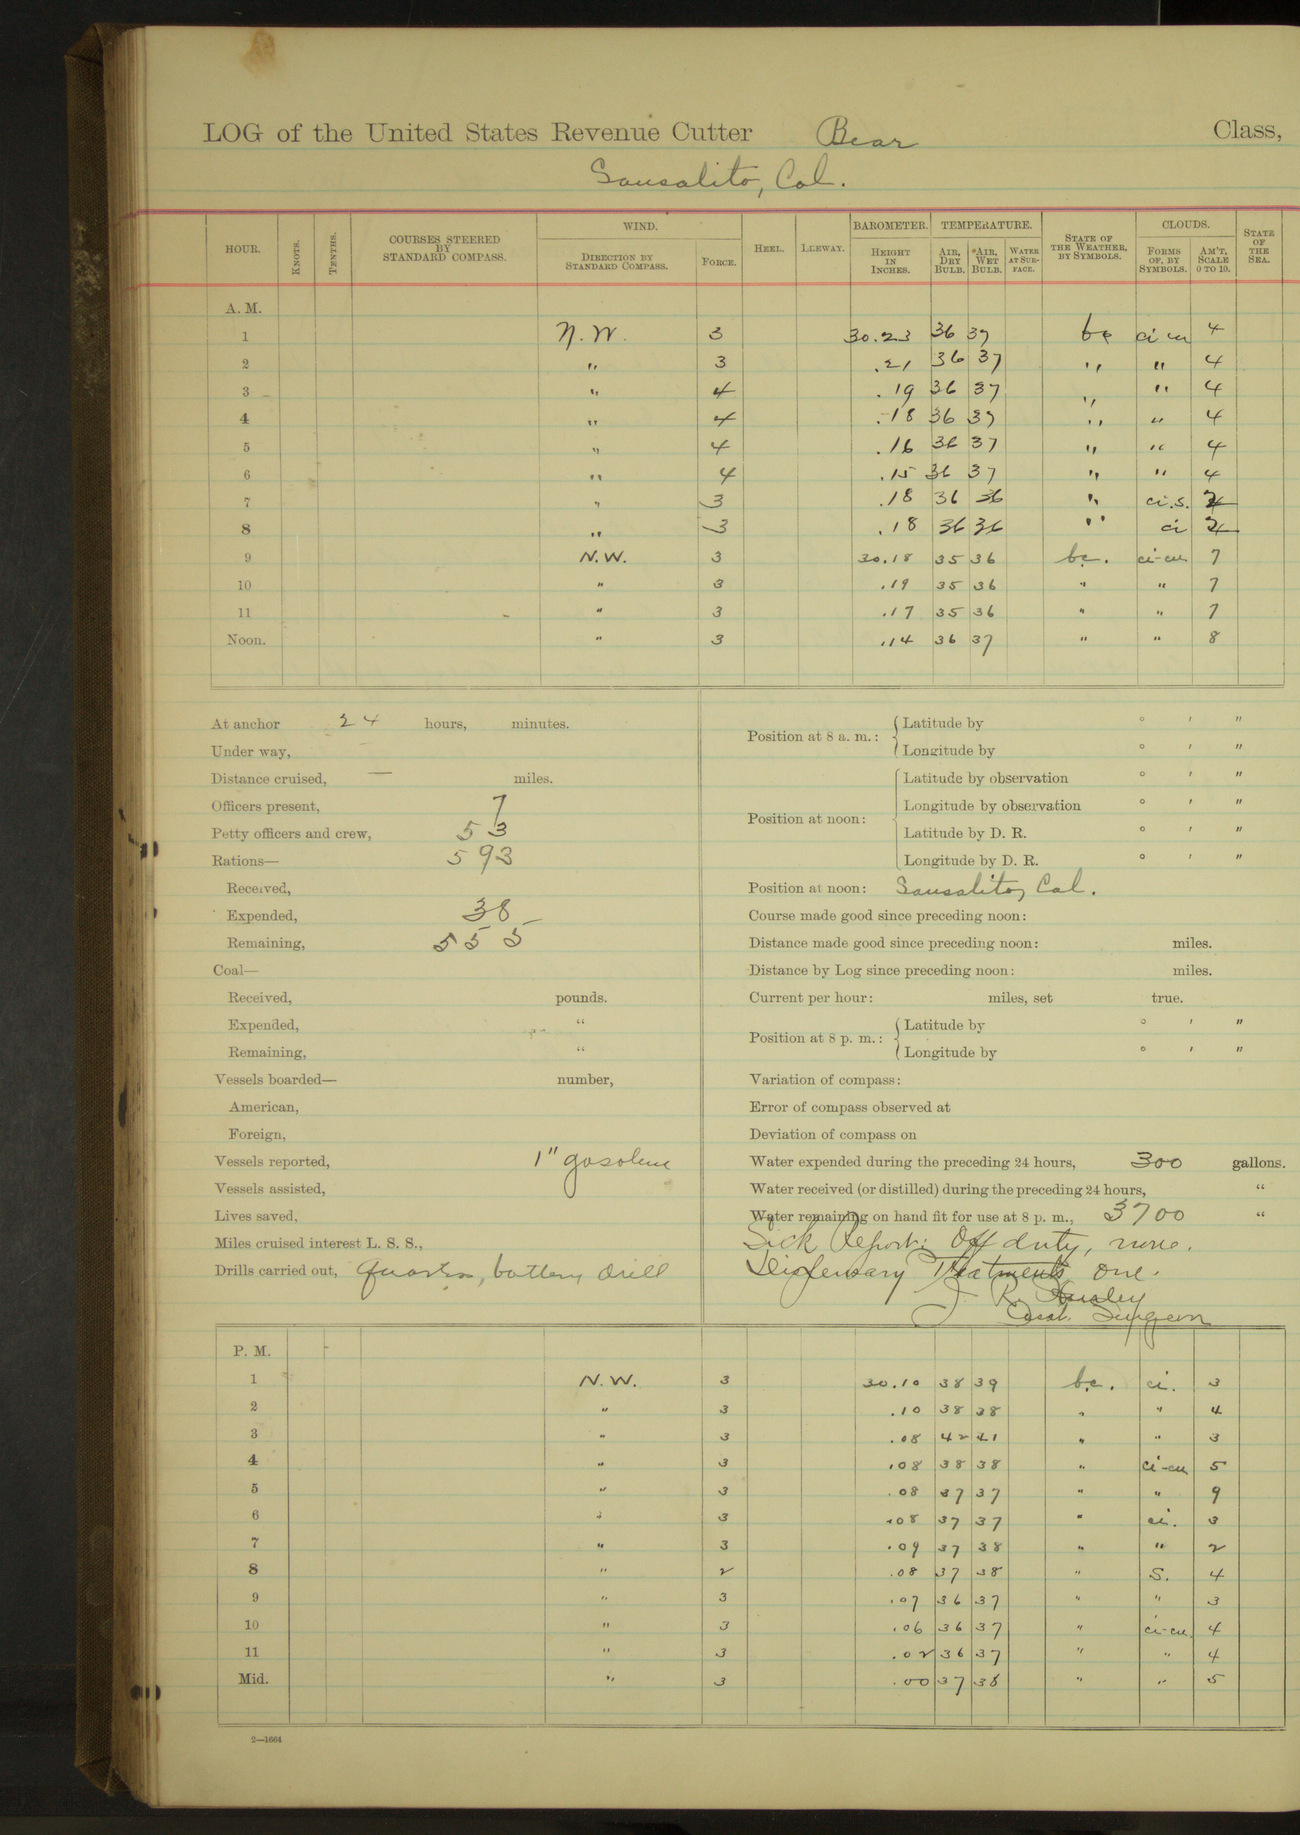 LOG of the United States Revenue Cutter Bear Class,
Sausalito, Cal.
HOUR. KNOTS. TENTHS. COURSES STEERED BY STANDARD COMPASS. WIND. DIRECTION BY STANDARD COMPASS. FORCE. HEEL. LEEWAY. BAROMETER. HEIGHT IN INCHES. TEMPERATURE. AIR, DRY BULB. *AIR, WET BULB. WATER AT SURFACE. STATE OF THE WEATHER, BY SYMBOLS. CLOUDS. FORMS OF, BY SYMBOLS. AM'T, SCALE 0 TO 10. STATE OF THE SEA.
A. M.
1 N.W. 3 30.23 36 37 bc ci cu 4
2 " 3 .21 36 37 " " 4
3 " 4 .19 36 37 " " 4
4 " 4 .18 36 37 " " 4
5 " 4 .16 36 37 " " 4
6 " 4 .15 36 37 " " 4
7 " 3 .18 36 36 " ci.s.
8 " 3 .18 36 36 " ci
9 N.W. 3 30.18 35 36 bc. ci-cu 7
10 " 3 .19 35 36 " " 7
11 " 3 .17 35 36 " " 7
Noon. " 3 .14 36 37 " " 8
At anchor 24 hours, minutes.
Under way, —
Distance cruised, — miles.
Officers present, 7
Petty officers and crew, 53
Rations— 593
Received,
Expended, 38
Remaining, 555
Coal—
Received, pounds.
Expended, "
Remaining, "
Vessels boarded— number,
American,
Foreign,
Vessels reported, 1" gasolene
Vessels assisted,
Lives saved,
Miles cruised interest L. S. S.,
Drills carried out, Quarters, battery drill
Position at 8 a. m.: Latitude by ° ' "
Longitude by ° ' "
Position at noon: Latitude by observation ° ' "
Longitude by observation ° ' "
Latitude by D. R. ° ' "
Longitude by D. R. ° ' "
Position at noon: Sausalito, Cal.
Course made good since preceding noon:
Distance made good since preceding noon: miles.
Distance by Log since preceding noon: miles.
Current per hour: miles, set true.
Position at 8 p. m.: Latitude by ° ' "
Longitude by ° ' "
Variation of compass:
Error of compass observed at
Deviation of compass on
Water expended during the preceding 24 hours, 300 gallons.
Water received (or distilled) during the preceding 24 hours, "
Water remaining on hand fit for use at 8 p. m., 3700 "
Sick Report: Off duty, none.
Dispensary Treatments one.
J. R.
Surgeon
P. M.
1 N.W. 3 30.10 38 39 b.c. ci. 3
2 " 3 .10 38 38 " " 4
3 " 3 .08 42 41 " " 3
4 " 3 .08 38 38 " ci-cu 5
5 " 3 .08 37 37 " " 9
6 " 3 .08 37 37 " ci. 3
7 " 3 .09 37 38 " " 2
8 " 2 .08 37 38 " S. 4
9 " 3 .07 36 37 " " 3
10 " 3 .06 36 37 " ci-cu. 4
11 " 3 .02 36 37 " " 4
Mid. " 3 .00 37 38 " " 5
2—1664